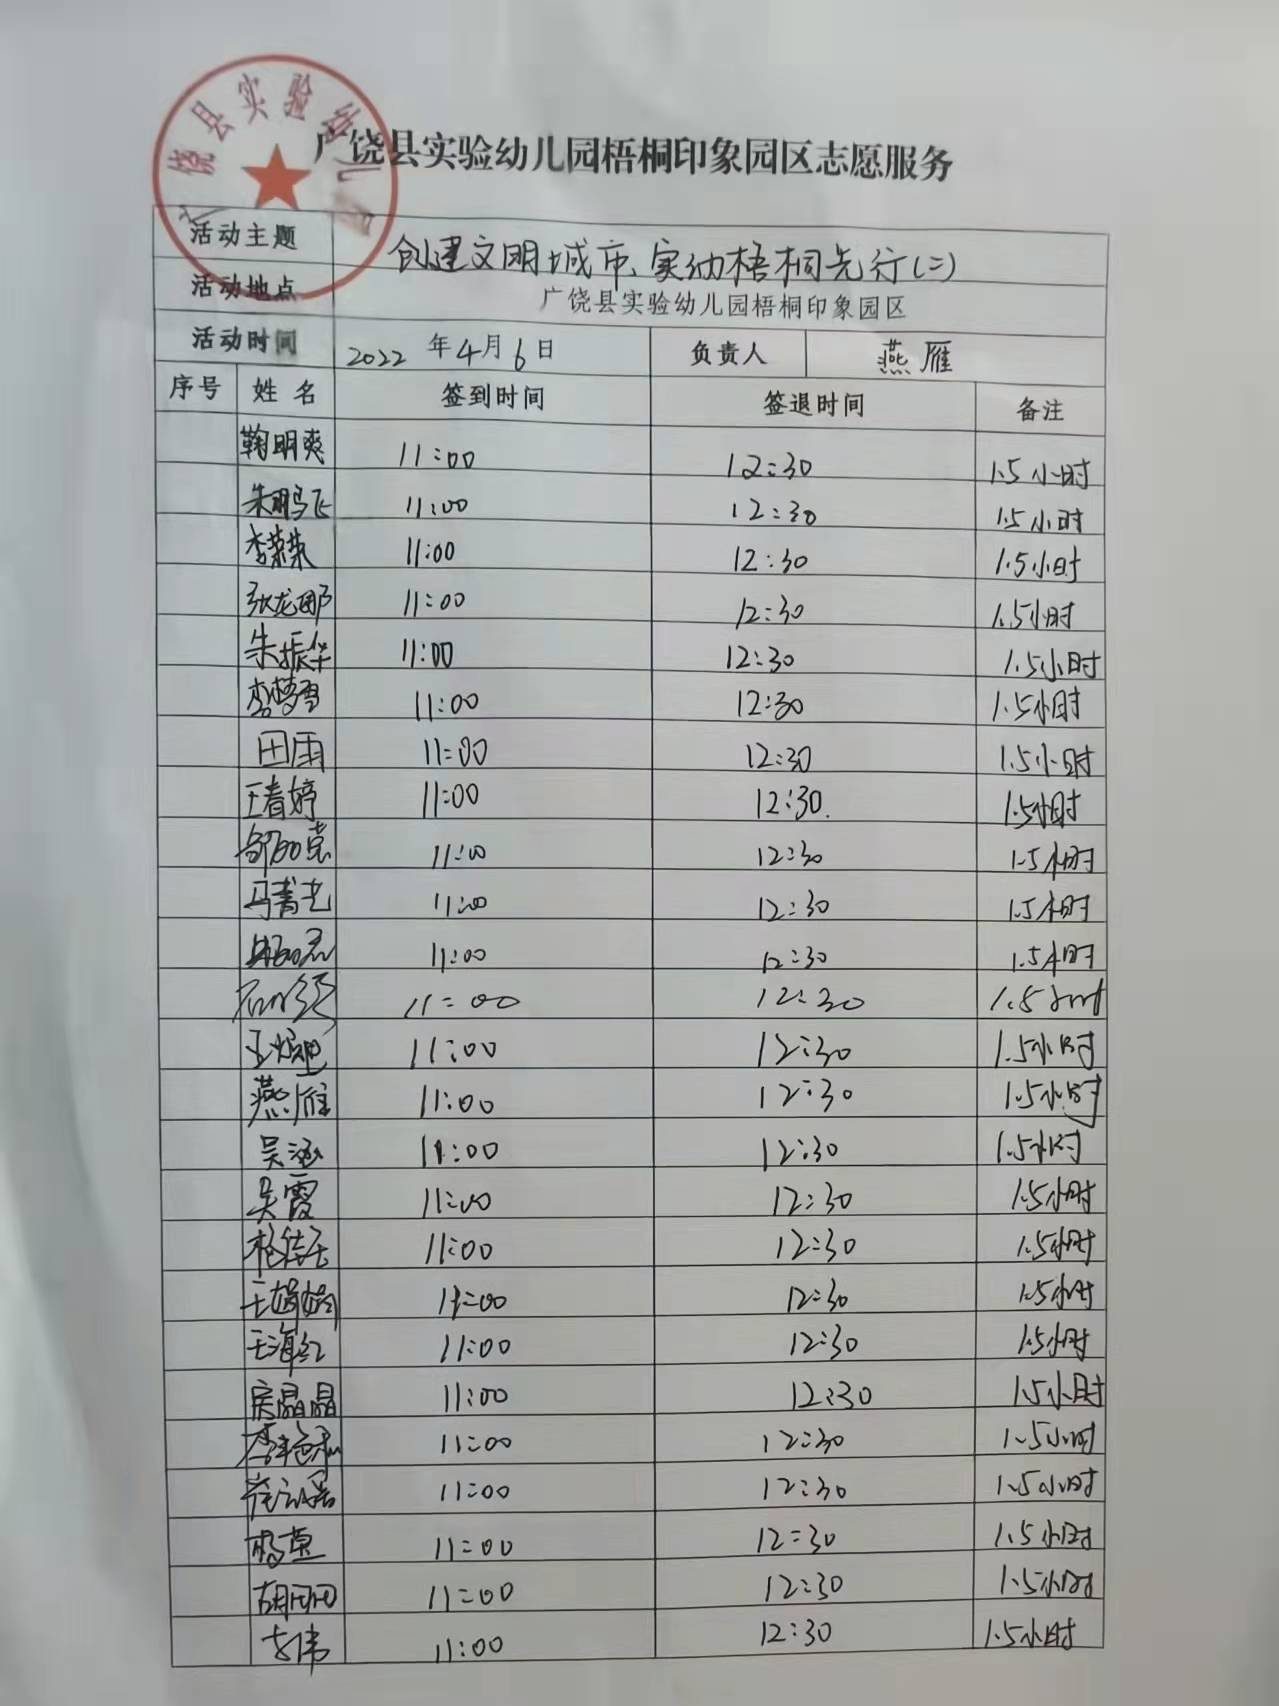 广饶县实验幼儿园梧桐印象园区志愿服务
活动主题 创建文明城市、实幼梧桐先行(二)
活动地点 广饶县实验幼儿园梧桐印象园区
活动时间 2022 年 4 月 6 日 负责人 燕雁
序号 姓名 签到时间 签退时间 备注
鞠明爽 11:00 12:30 1.5小时
朱鹏飞 11:00 12:30 1.5小时
李荣荣 11:00 12:30 1.5小时
张龙娜 11:00 12:30 1.5小时
朱振华 11:00 12:30 1.5小时
李梦雪 11:00 12:30 1.5小时
田雨 11:00 12:30 1.5小时
王春婷 11:00 12:30. 1.5小时
11:00 12:30 1.5小时
马青 11:00 12:30 1.5小时
11:00 12:30 1.5小时
11:00 12:30 1.5小时
王 11:00 12:30 1.5小时
燕雁 11:00 12:30 1.5小时
吴涵 11:00 12:30 1.5小时
吴霞 11:00 12:30 1.5小时
11:00 12:30 1.5小时
王娟娟 11:00 12:30 1.5小时
王海红 11:00 12:30 1.5小时
房晶晶 11:00 12:30 1.5小时
李 11:00 12:30 1.5小时
11:00 12:30 1.5小时
杨 11:00 12:30 1.5小时
胡田田 11:00 12:30 1.5小时
伟 11:00 12:30 1.5小时